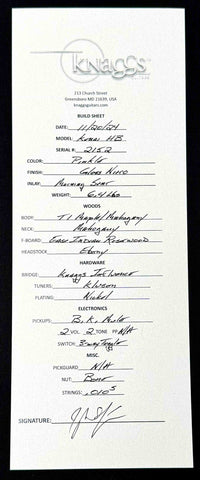 Knaggs
GUITARS
213 Church Street
Greensboro MD 21639, USA
knaggsguitars.com
BUILD SHEET
DATE: 11/20/24
MODEL: Kenai HB
SERIAL #: 2152
COLOR: Pinkle
FINISH: Gloss Nitro
INLAY: Morning Star
WEIGHT: 6.4 lbs
WOODS
BODY: T1 Maple/Mahogany
NECK: Mahogany
F-BOARD: East Indian Rosewood
HEADSTOCK: Ebony
HARDWARE
BRIDGE: Knaggs Influence
TUNERS: Kluson
PLATING: Nickel
ELECTRONICS
PICKUPS: B.K. Mule
2 VOL. 2 TONE PP N/A
SWITCH: 3-way toggle
MISC.
PICKGUARD N/A
NUT: Bone
STRINGS: .010s
SIGNATURE: